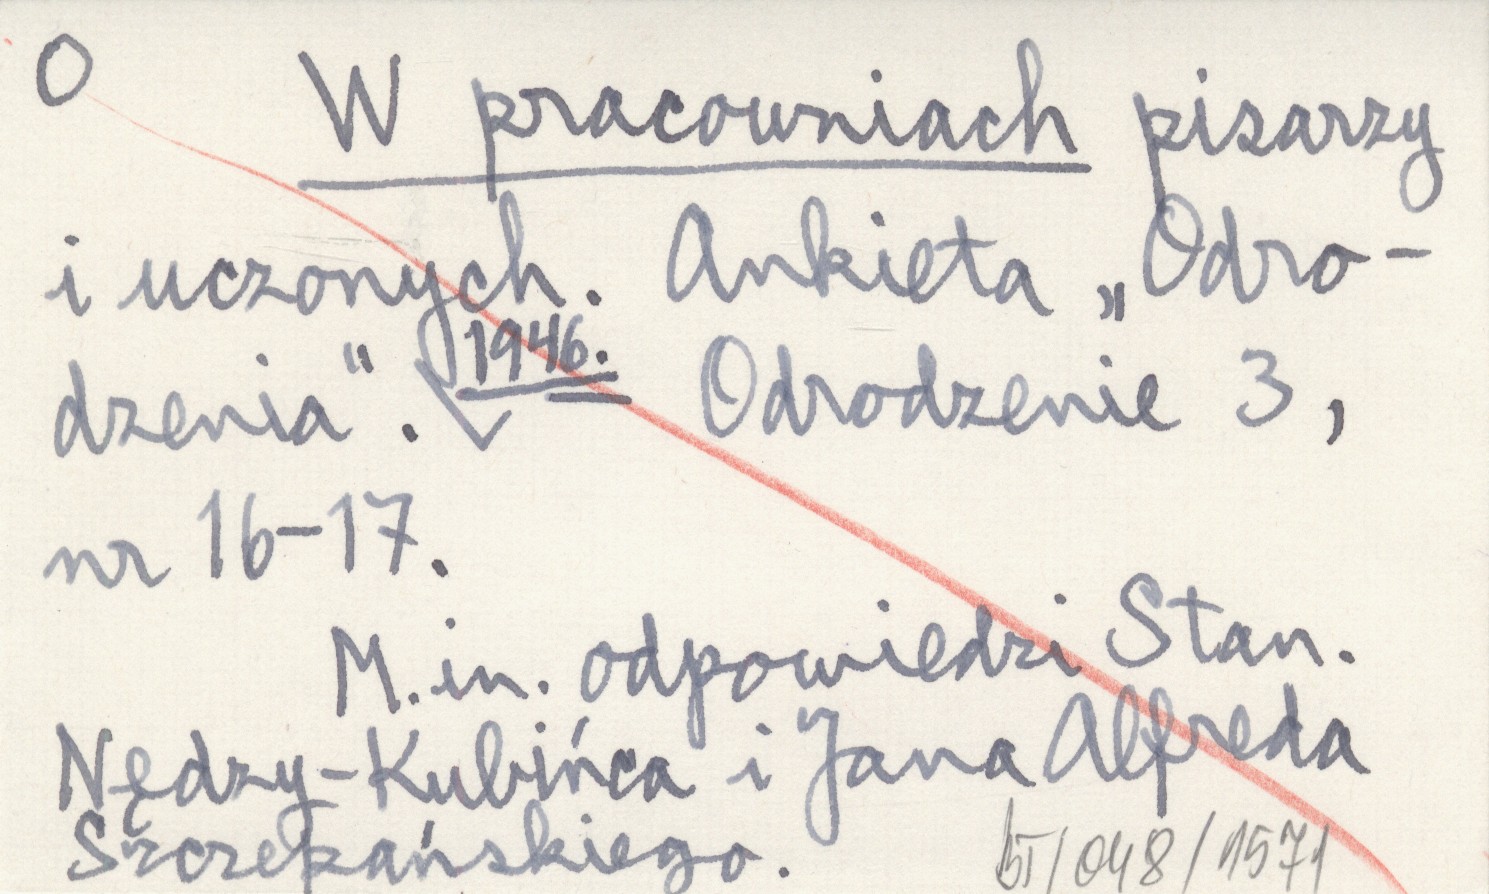 O W pracowniach pisarzy
i uczonych. Ankieta „Odro-
dzenia". 1946. Odrodzenie 3,
nr 16-17.
M. in. odpowiedzi Stan.
Nędzy-Kubińca i Jana Alfreda
Szczepańskiego.
/048/1571